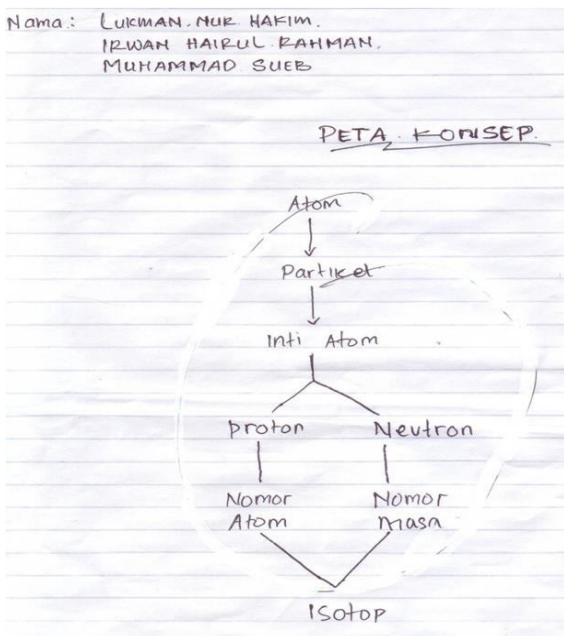 Nama: LUKMAN. NUR HAKIM.
IRWAN HAIRUL RAHMAN.
MUHAMMAD SUEB
PETA KONSEP.
Atom
Partikel
Inti Atom
proton Neutron
Nomor Atom Nomor masa
Isotop